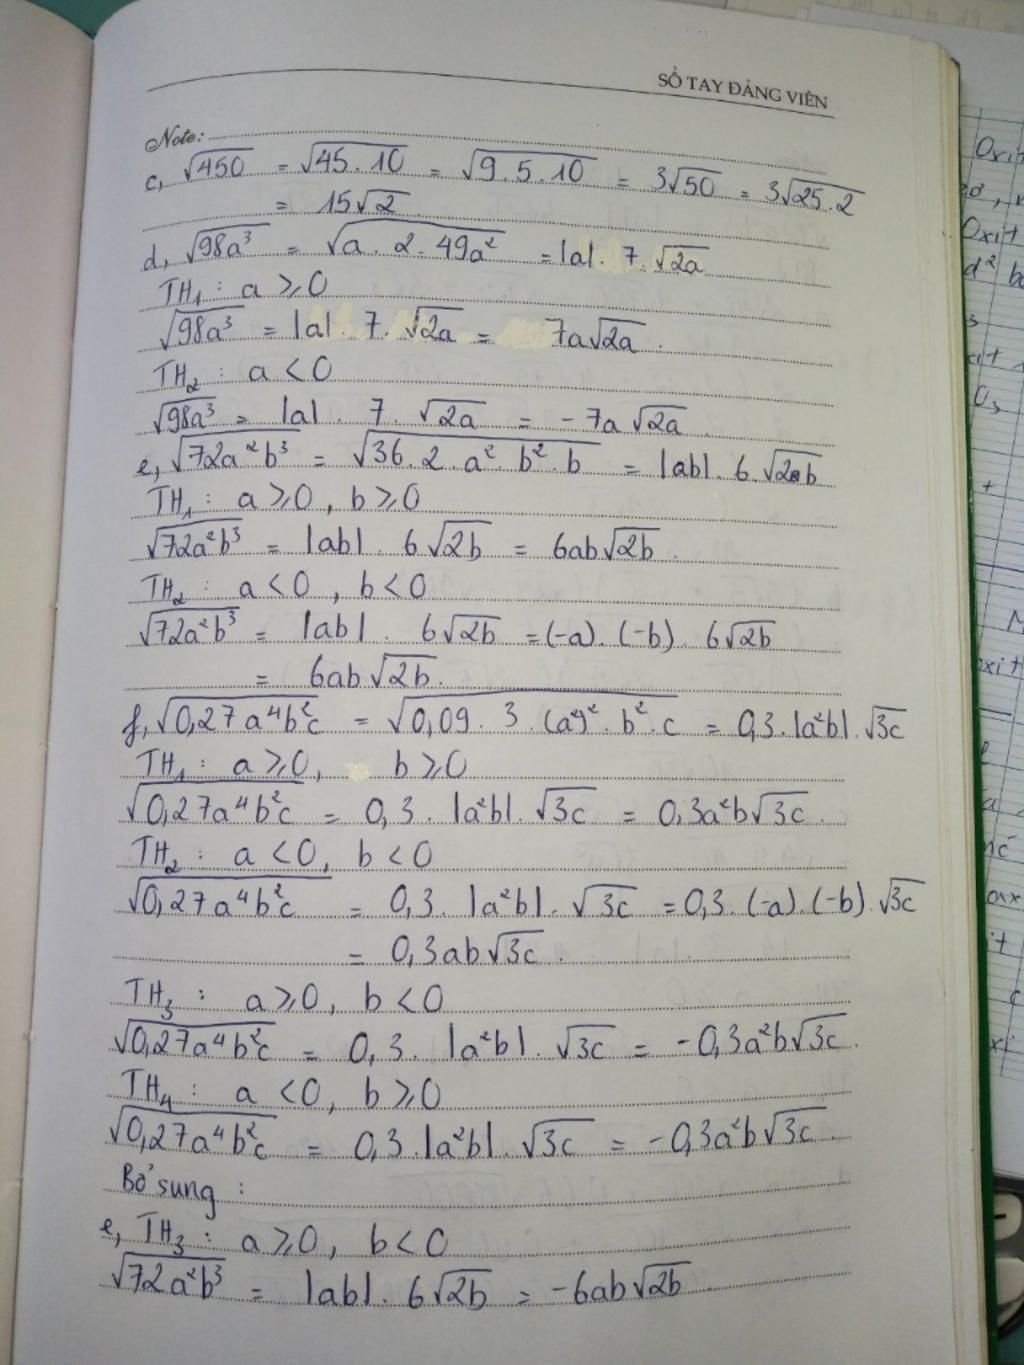 SỔ TAY ĐẢNG VIÊN
Note:
c, √450 = √45.10 = √9.5.10 = 3√50 = 3√25.2
= 15√2
d, √98a³ = √a.2.49a² = |a|.7.√2a
TH₁: a ⩾ 0
√98a³ = |a|.7.√2a = 7a√2a.
TH₂: a < 0
√98a³ = |a|.7.√2a = -7a√2a.
e, √72a²b³ = √36.2.a².b².b = |ab|.6.√2b
TH₁: a ⩾ 0, b ⩾ 0
√72a²b³ = |ab|.6√2b = 6ab√2b.
TH₂: a < 0, b < 0
√72a²b³ = |ab|.6√2b = (-a).(-b).6√2b
= 6ab√2b.
f, √0,27a⁴b²c = √0,09.3.(a²)².b².c = 0,3.|a²b|.√3c
TH₁: a ⩾ 0, b ⩾ 0
√0,27a⁴b²c = 0,3.|a²b|.√3c = 0,3a²b√3c.
TH₂: a < 0, b < 0
√0,27a⁴b²c = 0,3.|a²b|.√3c = 0,3.(-a).(-b).√3c
= 0,3ab√3c.
TH₃: a ⩾ 0, b < 0
√0,27a⁴b²c = 0,3.|a²b|.√3c = -0,3a²b√3c.
TH₄: a < 0, b ⩾ 0
√0,27a⁴b²c = 0,3.|a²b|.√3c = -0,3a²b√3c.
Bổ sung:
e, TH₃: a ⩾ 0, b < 0
√72a²b³ = |ab|.6√2b = -6ab√2b.